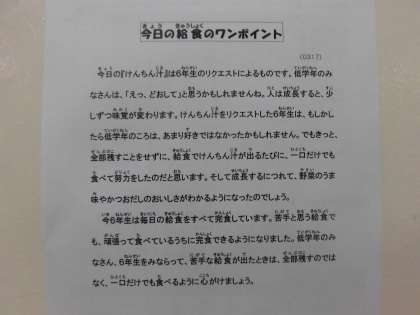 今日の給食のワンポイント
(0317)
今日の『けんちん汁』は6年生のリクエストによるものです。低学年のみ
なさんは、「えっ、どおして」と思うかもしれませんね。人は成長すると、少
しずつ味覚が変わります。けんちん汁をリクエストした6年生は、もしかし
たら低学年のころは、あまり好きではなかったかもしれません。でもきっと、
全部残すことをせずに、給食でけんちん汁が出るたびに、一口だけでも
食べて努力をしたのだと思います。そして成長するにつれて、野菜のうま
味やかつおだしのおいしさがわかるようになったのでしょう。
今6年生は毎日の給食をすべて完食しています。苦手と思う給食で
も、頑張って食べているうちに完食できるようになりました。低学年のみ
なさん、6年生をみならって、苦手な給食が出たときは、全部残すのでは
なく、一口だけでも食べるように心がけましょう。